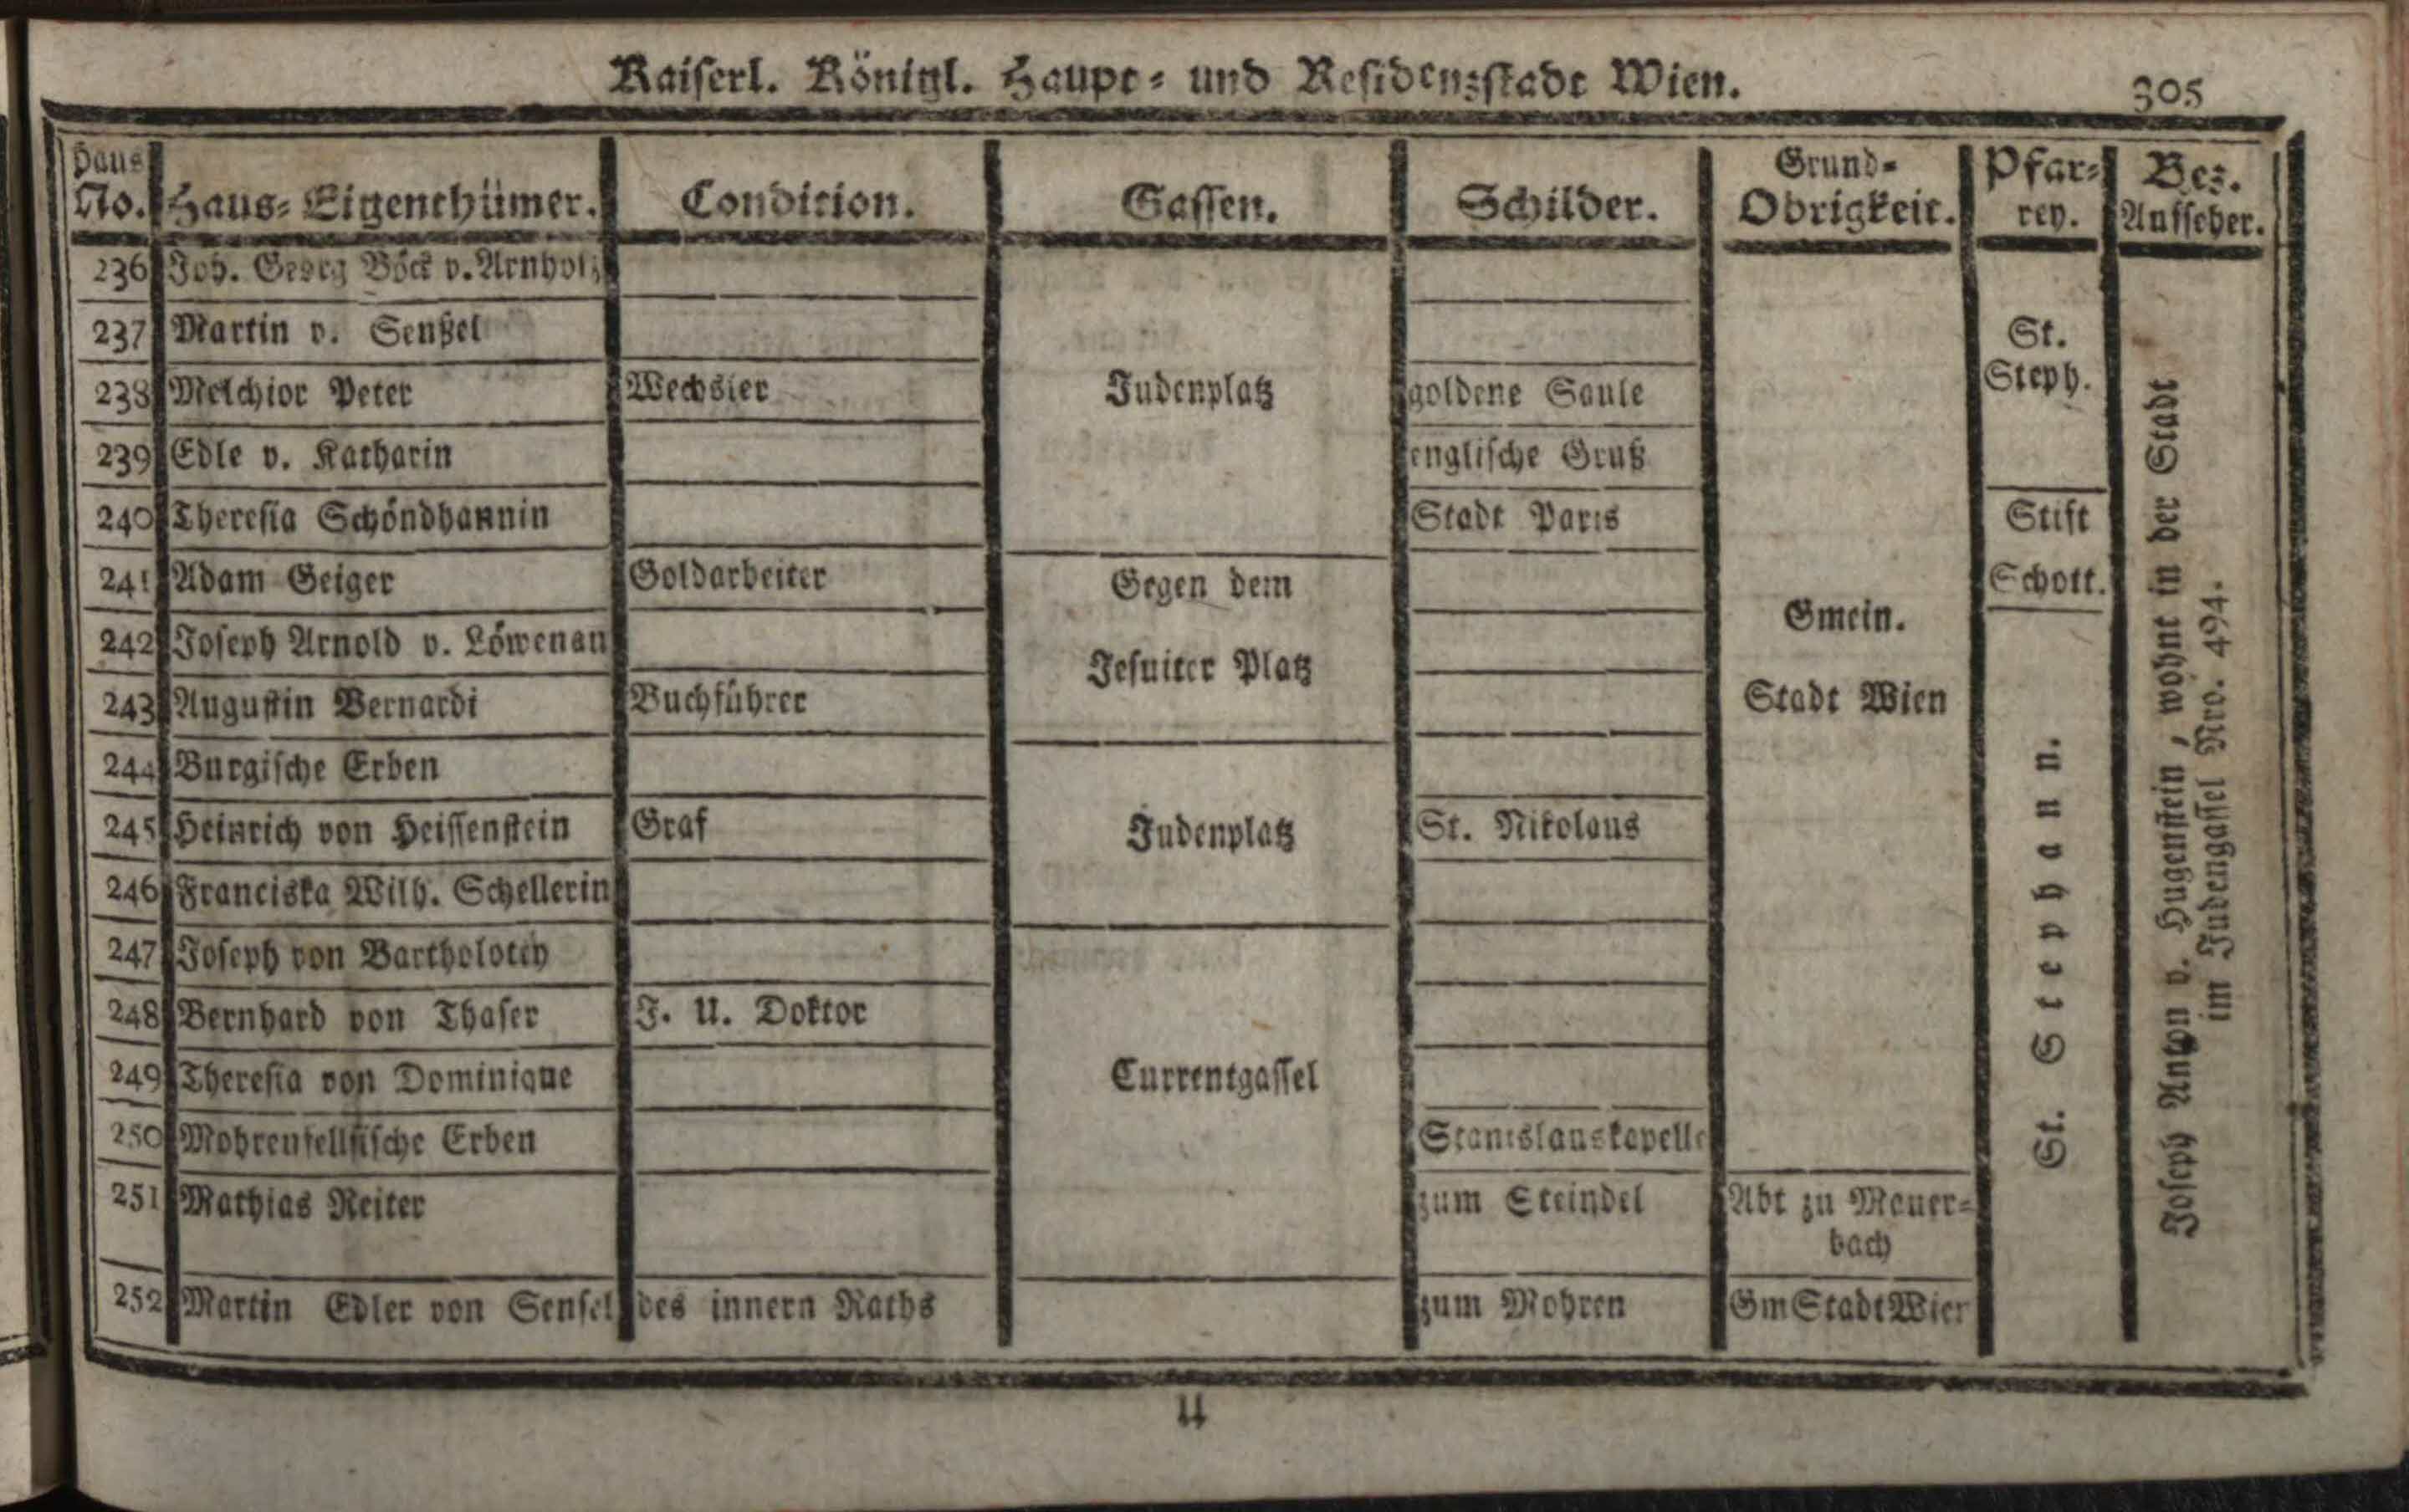 Kaiserl. Königl. Haupt- und Residenzstadt Wien. 305
Haus No. Haus-Eigenthümer. Condition. Gassen. Schilder. Grund-Obrigkeit. Pfar-rey. Bez. Aufseher.
236 Joh. Georg Böck v. Arnholz
237 Martin v. Senßel
St.
238 Melchior Peter Wechsler Judenplatz goldene Saule Steph.
239 Edle v. Katharin englische Gruß
240 Theresia Schöndhannin Stadt Paris Stift
241 Adam Geiger Goldarbeiter Gegen dem Schott.
Gmein.
242 Joseph Arnold v. Löwenau Jesuiter Platz
243 Augustin Bernardi Buchführer Stadt Wien
244 Burgische Erben
245 Heinrich von Heissenstein Graf Judenplatz St. Nikolaus
246 Franciska Wilh. Schellerin
247 Joseph von Bartholotey
248 Bernhard von Thaser J. U. Doktor
249 Theresia von Dominique Currentgassel
250 Mohrenfellsische Erben Stanislauskapelle
251 Mathias Reiter zum Steindel Abt zu Mauer-
bach
252 Martin Edler von Sensel des innern Raths zum Mohren Gm Stadt Wien
St. Stephann.
Joseph Anton v. Hugenstein, wohnt in der Stadt
im Judengassel Nro. 494.
U